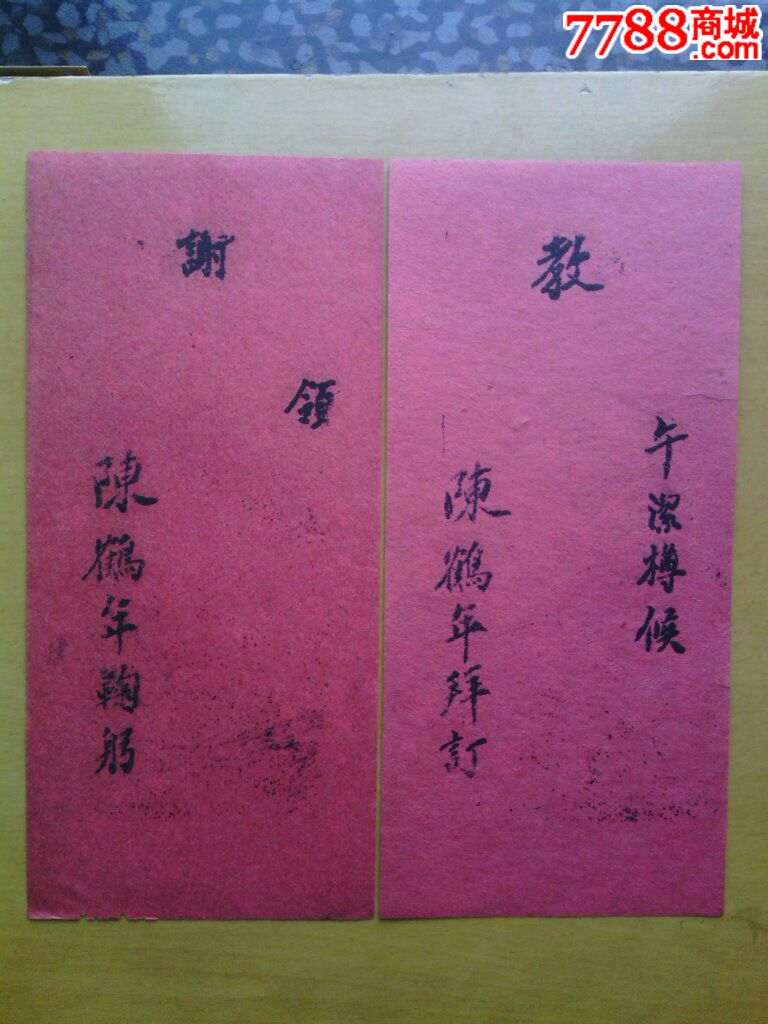 7788商城
.com
午潔樽候
教
陳鶴年拜訂
領
謝
陳鶴年鞠躬